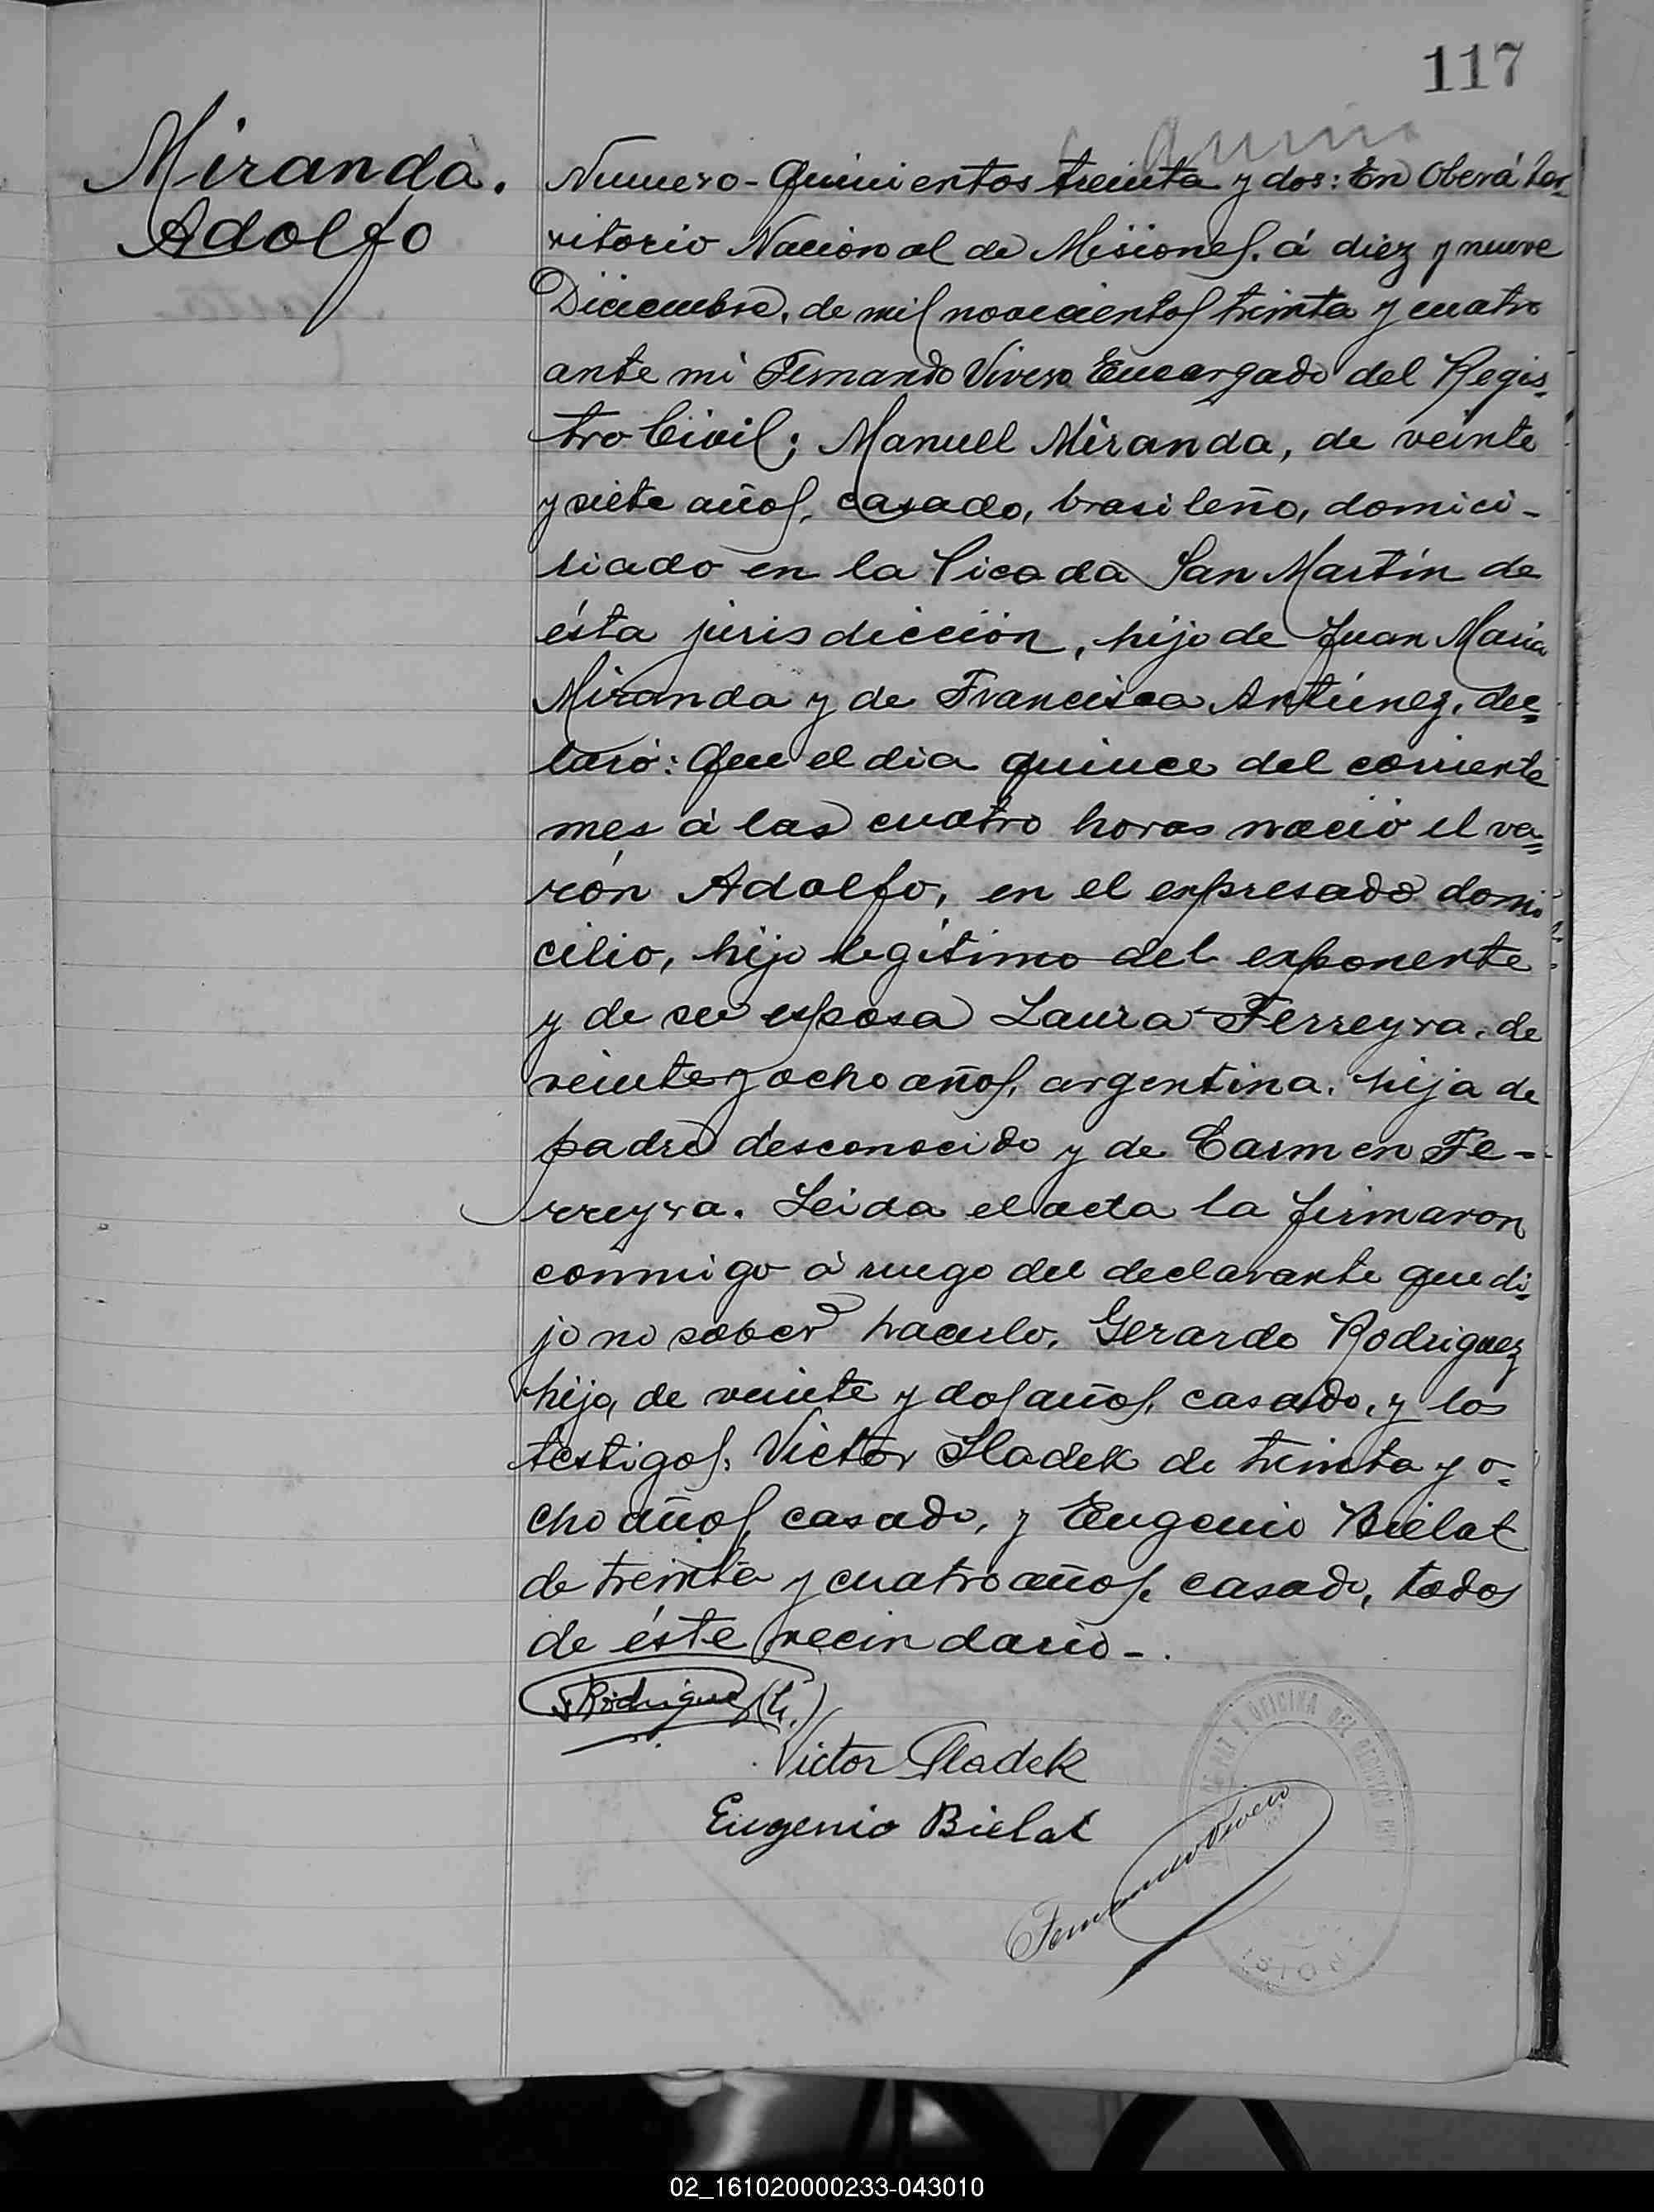 117
Miranda.
Adolfo
Numero-Quinientos treinta y dos: En Oberá Ter-
ritorio Nacional de Misiones, á diez y nueve
Diciembre, de mil novecientos treinta y cuatro
ante mi Fernando Vivero Encargado del Regis-
tro Civil; Manuell Miranda, de veinte
y siete años, casado, brasileño, domici-
liado en la Picada San Martín de
ésta jurisdicción, hijo de Juan Maria
Miranda y de Francisca Antúnez, dec=
laró: Que el dia quince del corriente
mes á las cuatro horas nació el va=
rón Adolfo, en el expresado domi
cilio, hijo legítimo del exponente
y de su esposa Laura Ferreyra, de
veinte y ocho años, argentina, hija de
padre desconocido y de Carmen Fe=
rreyra. Leida el acta la firmaron
conmigo á ruego del declarante que di=
jo no saber hacerlo, Gerardo Rodriguez
hijo, de veinte y dos años, casado, y los
testigos, Victor Sladek de treinta y o=
cho años, casado, y Eugenio Bielat
de treinta y cuatro años, casado, todos
de éste vecindario-.
Rodriguez (h.)
Victor Sladek
Eugenio Bielat
Fernando Vivero
OFICINA DEL
02_161020000233-043010